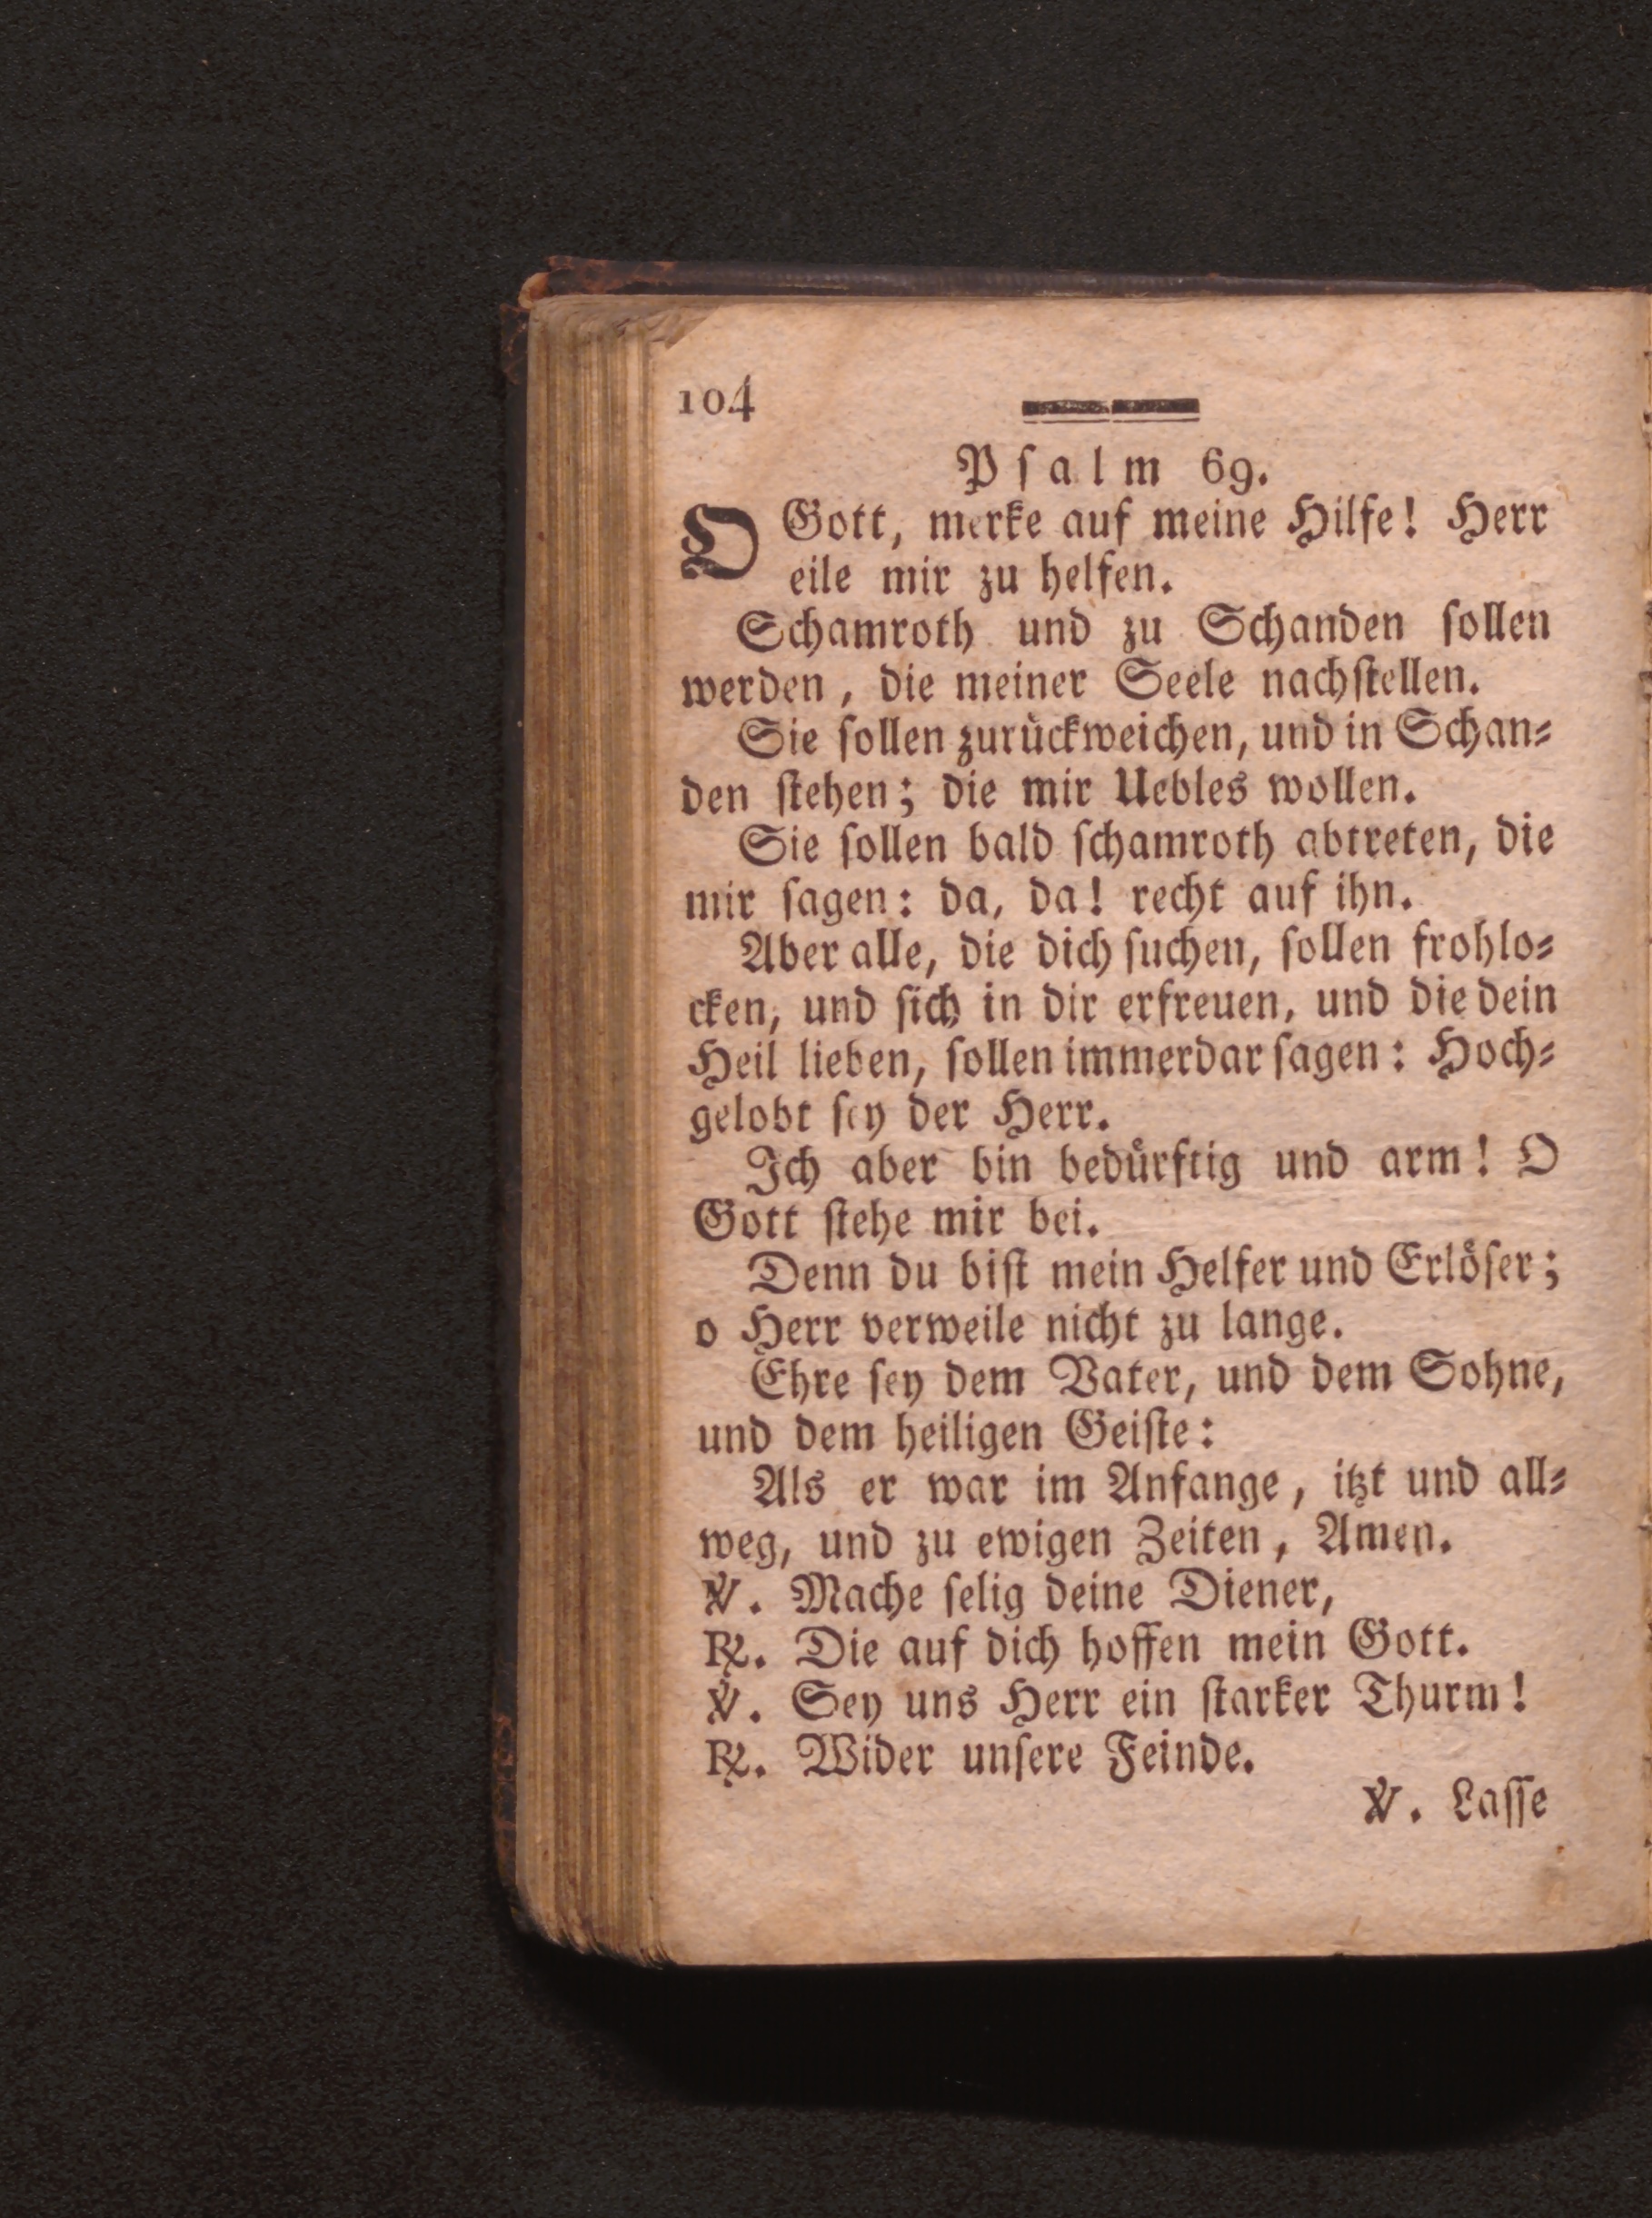 104
Psalm 69.
O Gott, merke auf meine Hilfe! Herr
eile mir zu helfen.
Schamroth und zu Schanden sollen
werden, die meiner Seele nachstellen.
Sie sollen zurückweichen, und in Schan⸗
den stehen; die mir Uebles wollen.
Sie sollen bald schamroth abtreten, die
mir sagen: da, da! recht auf ihn.
Aber alle, die dich suchen, sollen frohlo⸗
cken, und sich in dir erfreuen, und die dein
Heil lieben, sollen immerdar sagen: Hoch⸗
gelobt sey der Herr.
Ich aber bin bedürftig und arm! O
Gott stehe mir bei.
Denn du bist mein Helfer und Erlöser;
o Herr verweile nicht zu lange.
Ehre sey dem Vater, und dem Sohne,
und dem heiligen Geiste:
Als er war im Anfange, itzt und all⸗
weg, und zu ewigen Zeiten, Amen.
℣. Mache selig deine Diener,
℟. Die auf dich hoffen mein Gott.
℣. Sey uns Herr ein starker Thurm!
℟. Wider unsere Feinde.
℣. Lasse